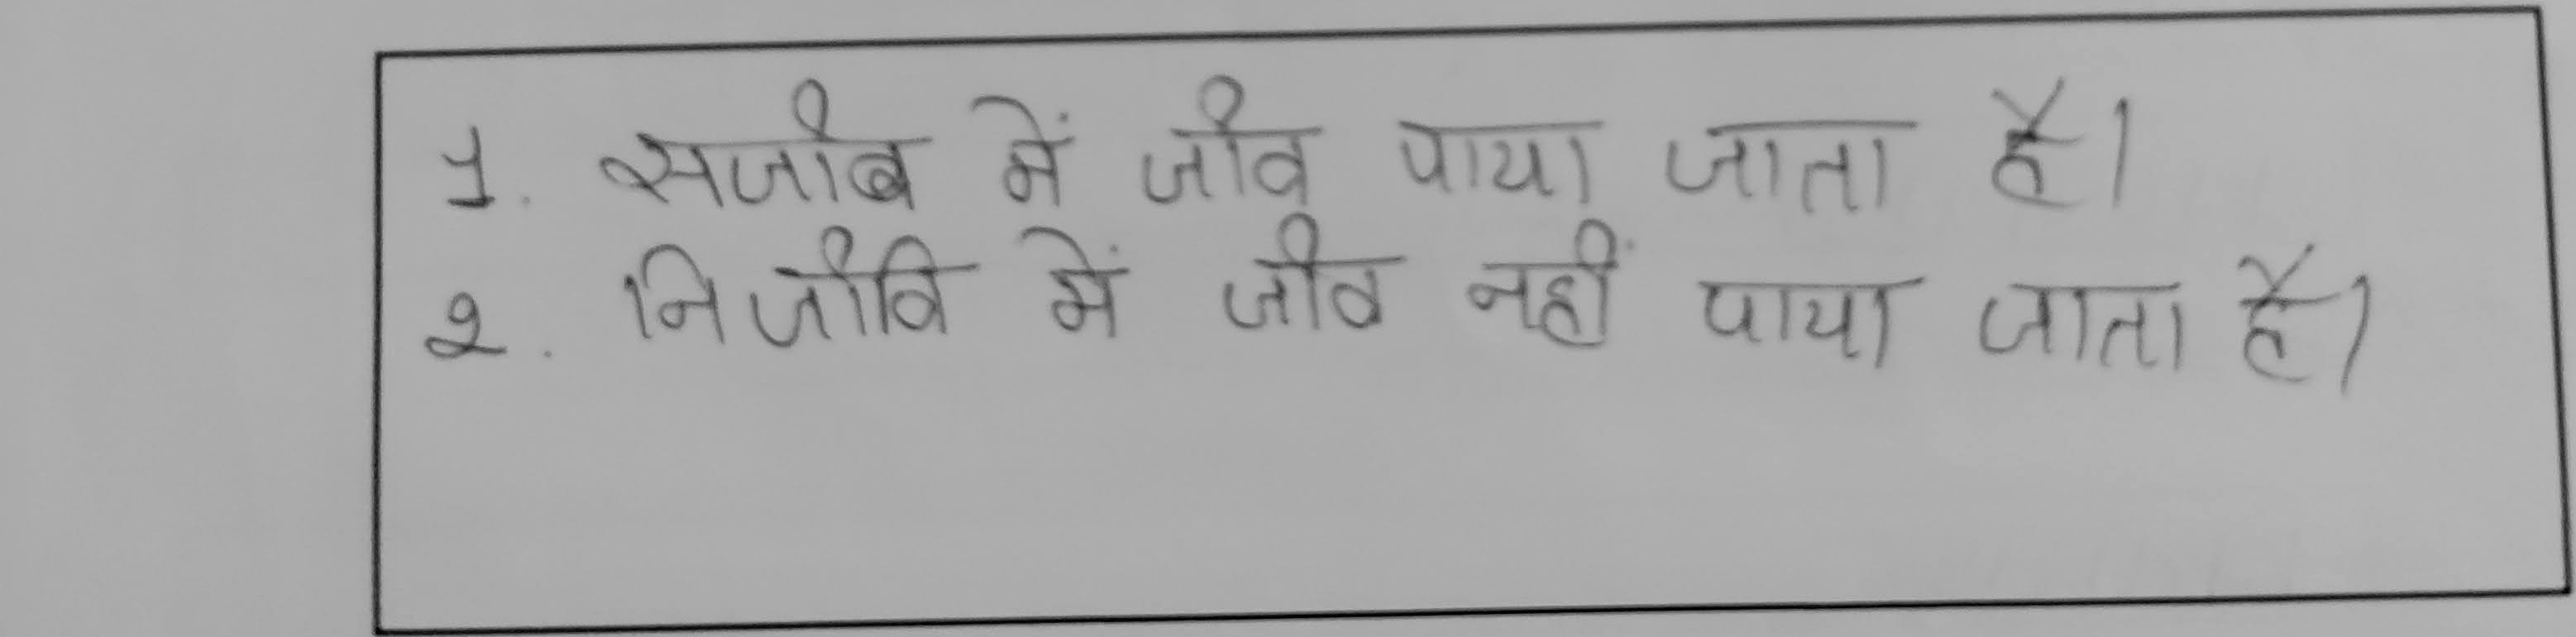 1. सजीव में जीव पाया जाता है।
2. निर्जीव में जीव नहीं पाया जाता है।